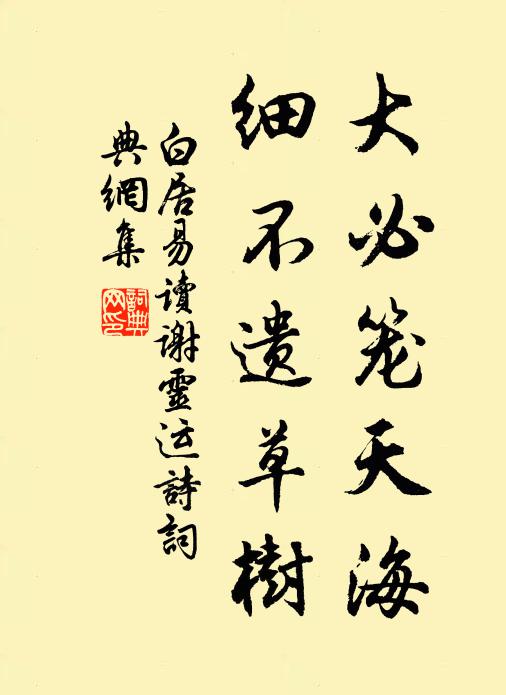 大必笼天海
细不遗草樹
白居易读谢靈运詩詞
典網集
詞典
网印